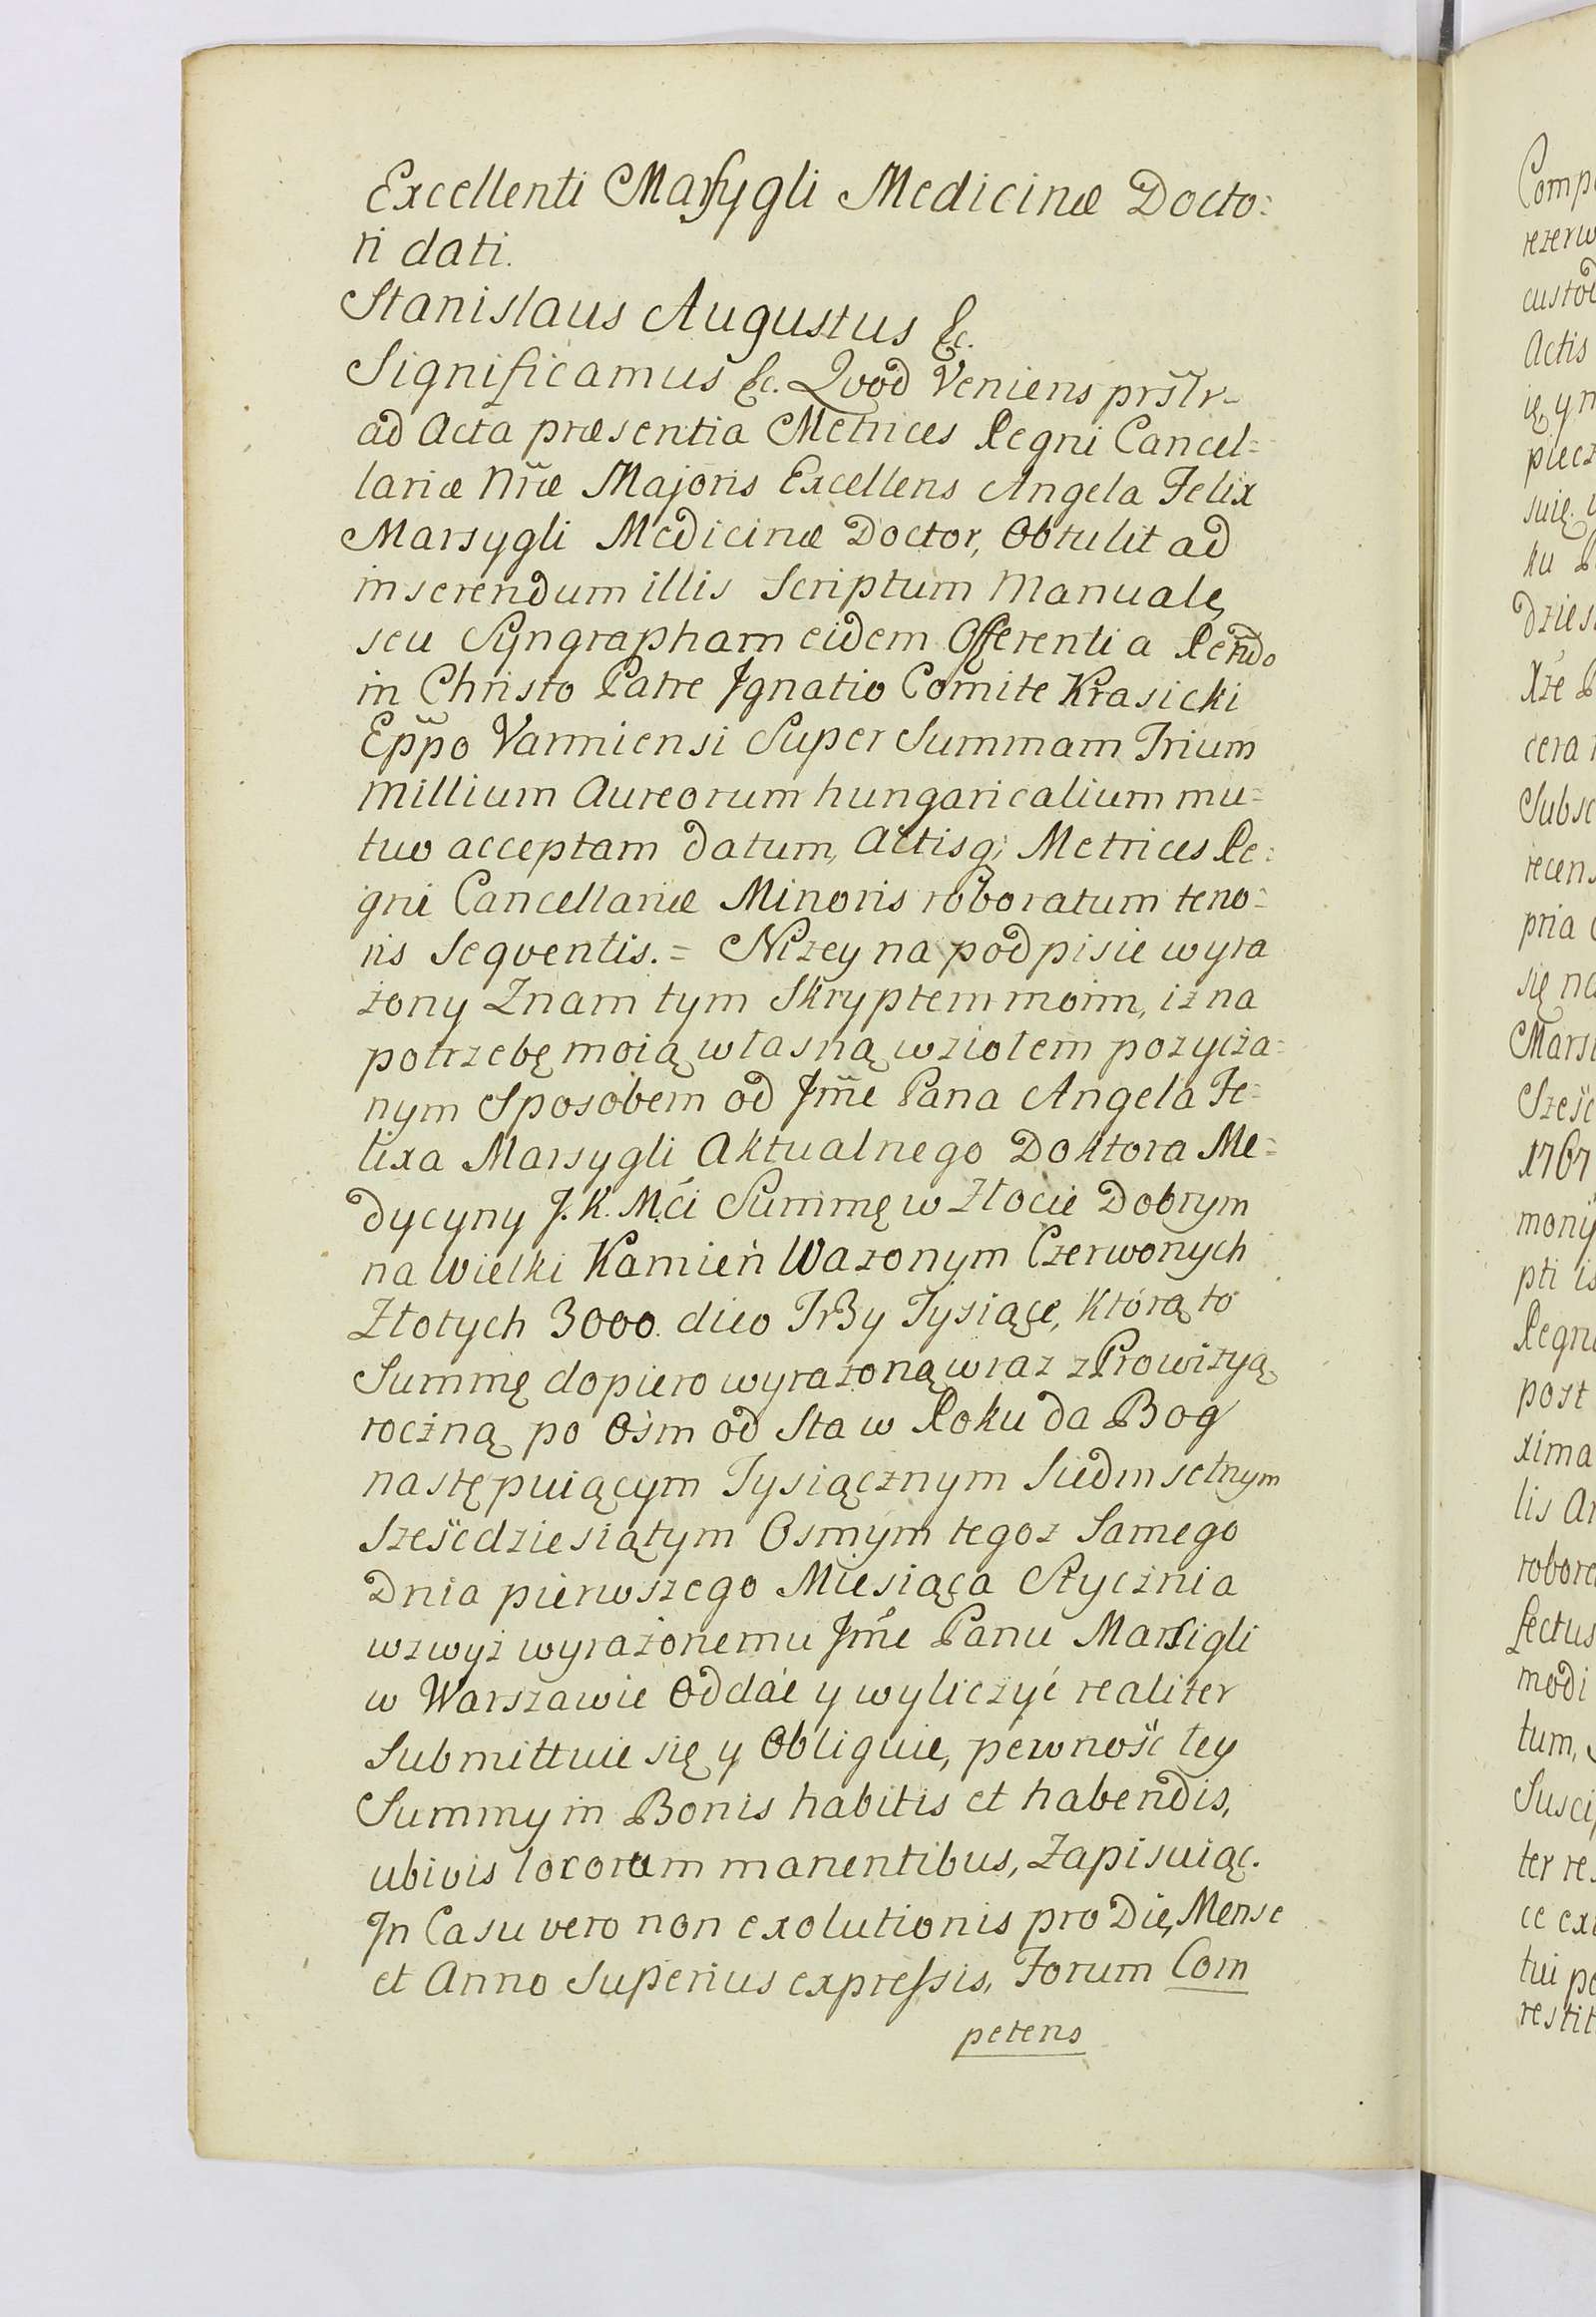 Excellenti Marsygli Medicinæ Docto=
ri dati.
Stanislaus Augustus &c.
Significamus &c. Qvod Veniens prstr-
ad Acta præsentia Metrices Regni Cancel=
lariæ Nræ Majoris Excellens Angela Felix
Marsygli Medicinæ Doctor, Obtulit ad
inserendum illis Scriptum Manuale,
seu Syngrapham eidem Offerenti a Rendo
in Christo Patre Ignatio Comite Krasicki
Eppo Varmiensi Super Summam Trium
Millium Aureorum hungaricalium mu=
tuo acceptam datum, Actisq; Metrices Re=
gni Cancellariæ Minoris roboratum teno=
ris Seqventis. = Nizey na podpisie wyra
żony Znam tym Skryptem moim, iż na
potrzebę moią własną wziołem pozycza=
nym Sposobem od Jme Pana Angela Fe=
lixa Marsygli Aktualnego Doktora Me=
dycyny J. K. Mći Summę w Złocie Dobrym
na Wielki Kamień Wazonym Czerwonych
Złotych 3000. dico TrZy Tysiące, którą to
Summę dopiero wyrazoną wraz z Prowizyą
roczną po Ośm od Sta w Roku da Bog
następuiącym Tysiącznym Siedmsetnym
Sześćdziesiątym Osmym tegoz Samego
Dnia pierwszego Miesiąca Stycznia
wzwyż wyrażonemu Jme Panu Marsigli
w Warszawie Oddać y wyliczyć realiter
Submittuie się y Obliguie, pewność tey
Summy in Bonis habitis et habendis,
ubivis locorum manentibus, Zapisuiąc.
In Casu vero non exolutionis pro Die, Mense
et Anno Superius expressis, Forum Com
petens
Comp
rezerw
custod
Actis
piecz
ku
dzies
Xże
cera
Subsc
recens
pria
się na
Mars
Sześć
1767
mony
pti is
Regni
post
xima
lis
robore
fectus
modi
tum,
Susci
ter re
ce
tui
restit